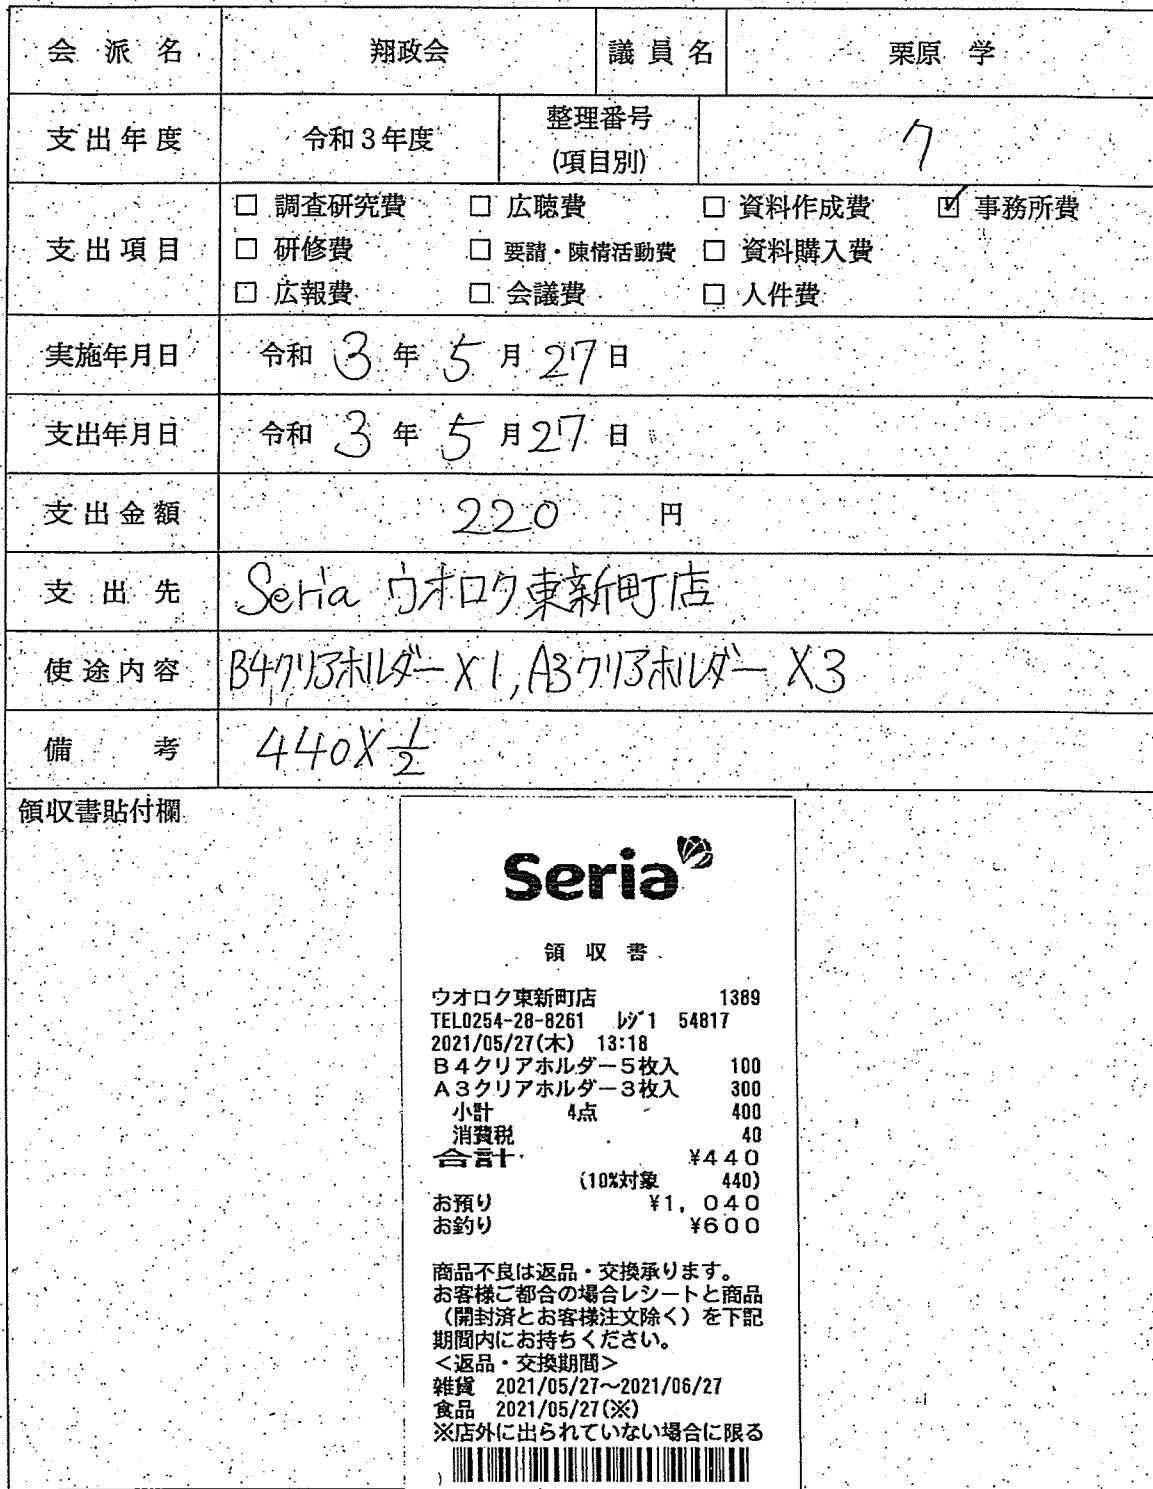 会派名 翔政会 議員名 栗原 学
支出年度 令和3年度 整理番号(項目別) 7
支出項目
□ 調査研究費 □ 広聴費 □ 資料作成費 ☑ 事務所費
□ 研修費 □ 要請・陳情活動費 □ 資料購入費
□ 広報費 □ 会議費 □ 人件費
実施年月日 令和 3 年 5 月 27 日
支出年月日 令和 3 年 5 月 27 日
支出金額 220 円
支出先 Seria ウオロク東新町店
使途内容 B4クリアホルダー×1, A3クリアホルダー ×3
備考 440×1/2
領収書貼付欄
Seria
領収書
ウオロク東新町店 1389
TEL0254-28-8261 ﾚｼﾞ1 54817
2021/05/27(木) 13:18
B4クリアホルダー5枚入 100
A3クリアホルダー3枚入 300
小計 4点 400
消費税 40
合計 ¥440
(10%対象 440)
お預り ¥1,040
お釣り ¥600
商品不良は返品・交換承ります。
お客様ご都合の場合レシートと商品
（開封済とお客様注文除く）を下記
期間内にお持ちください。
＜返品・交換期間＞
雑貨 2021/05/27～2021/06/27
食品 2021/05/27(※)
※店外に出られていない場合に限る